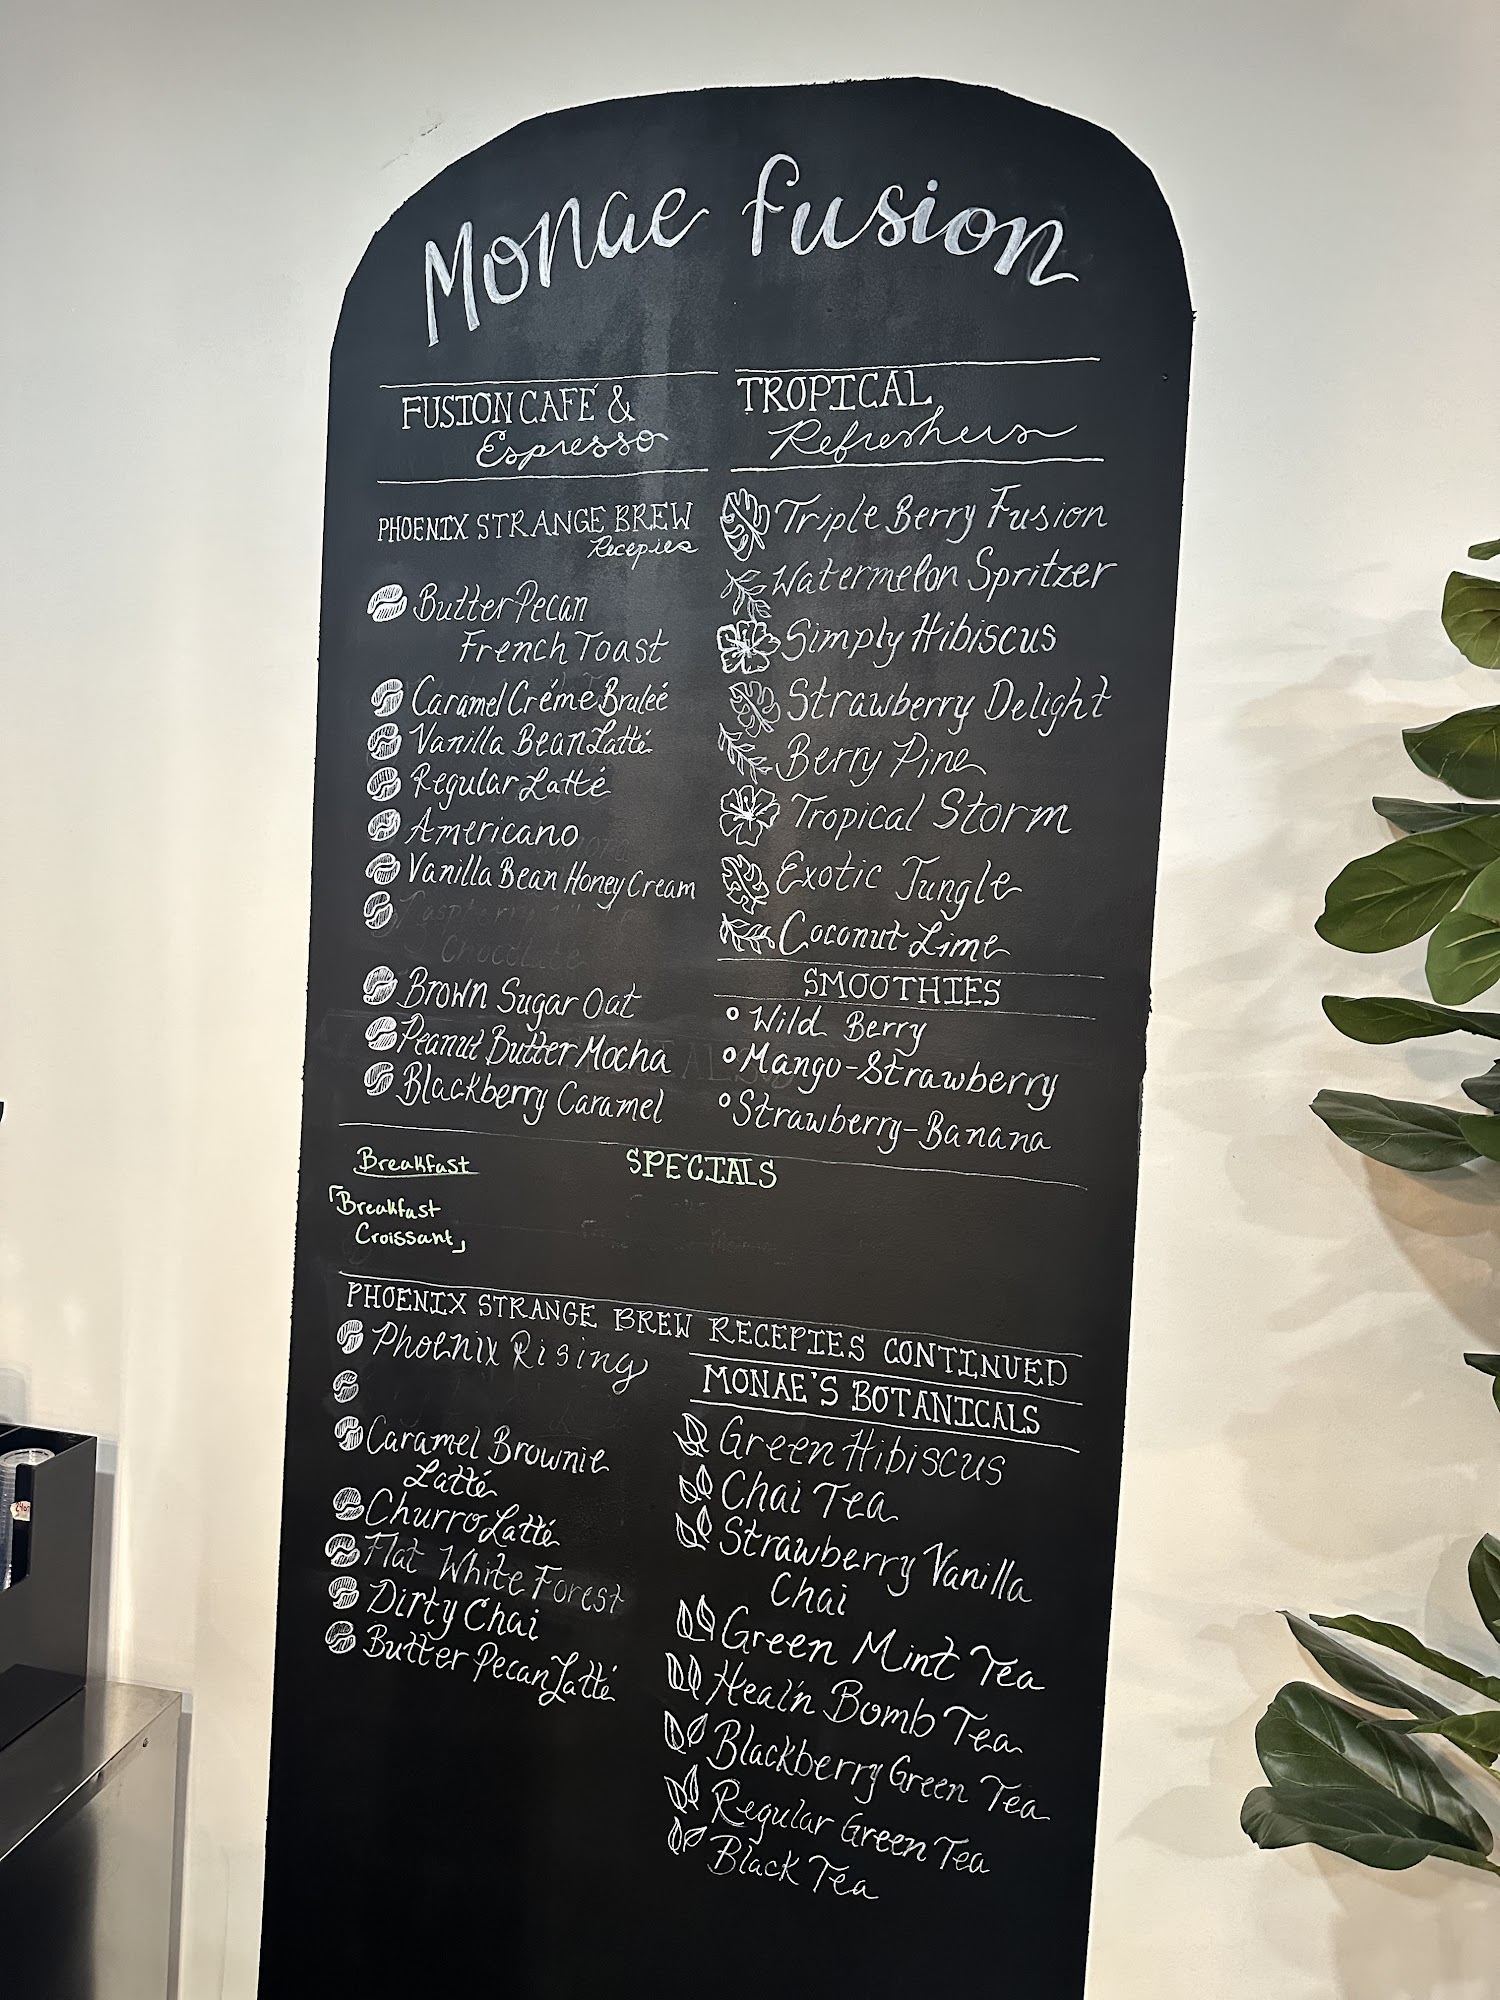 Monae fusion
FUSION CAFÉ &
Espresso
PHOENIX STRANGE BREW
Recepies
Butter Pecan
French Toast
Caramel Créme Bruleé
Vanilla Bean Latté
Regular Latté
Americano
Vanilla Bean Honey Cream
Raspberry
Chocolate
Brown Sugar Oat
Peanut Butter Mocha
Blackberry Caramel
TROPICAL
Refreshers
Triple Berry Fusion
Watermelon Spritzer
Simply Hibiscus
Strawberry Delight
Berry Pine
Tropical Storm
Exotic Jungle
Coconut Lime
SMOOTHIES
Wild Berry
Mango-Strawberry
Strawberry-Banana
SPECIALS
Breakfast
「Breakfast
Croissant」
PHOENIX STRANGE BREW RECEPIES CONTINUED
Phoenix Rising
Caramel Brownie
Latté
Churro Latté
Flat White Forest
Dirty Chai
Butter Pecan Latté
MONAE'S BOTANICALS
Green Hibiscus
Chai Tea
Strawberry Vanilla
Chai
Green Mint Tea
Heal'n Bomb Tea
Blackberry Green Tea
Regular Green Tea
Black Tea